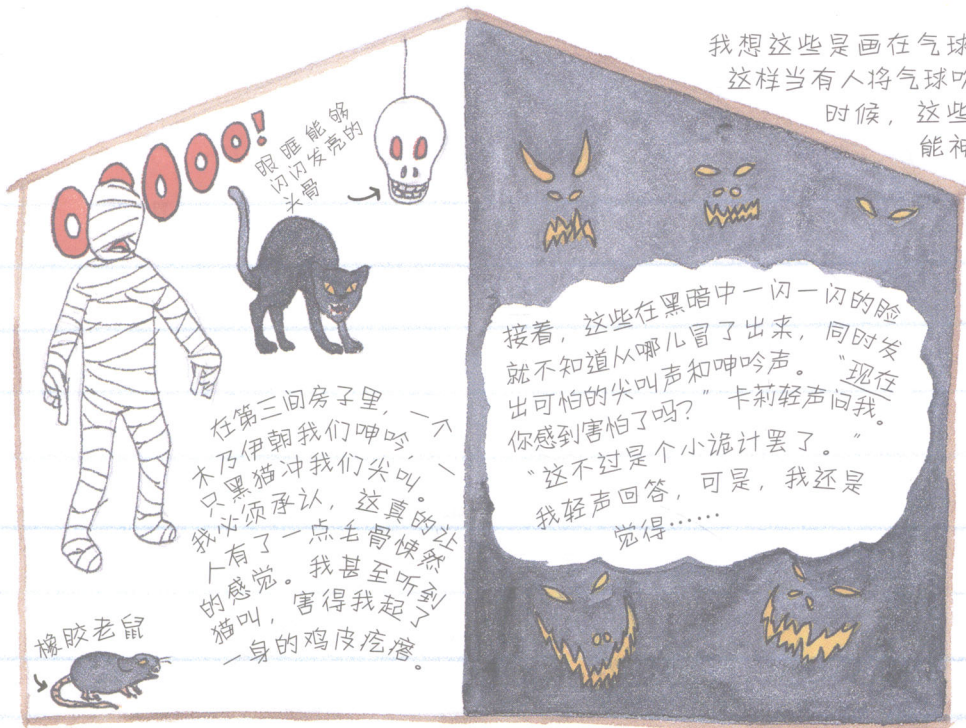 OOOOo!
眼眶能够
闪闪发亮的
头骨
在第三间房子里，一个
木乃伊朝我们呻吟，一
只黑猫冲我们尖叫。
我必须承认，这真的让
人有了一点毛骨悚然
的感觉。我甚至听到
猫叫，害得我起了
一身的鸡皮疙瘩。
橡胶老鼠
我想这些是画在气球
这样当有人将气球吹
时候，这些
能神
接着，这些在黑暗中一闪一闪的脸
就不知道从哪儿冒了出来，同时发
出可怕的尖叫声和呻吟声。“现在
你感到害怕了吗？”卡莉轻声问我。
“这不过是个小诡计罢了。”
我轻声回答，可是，我还是
觉得……